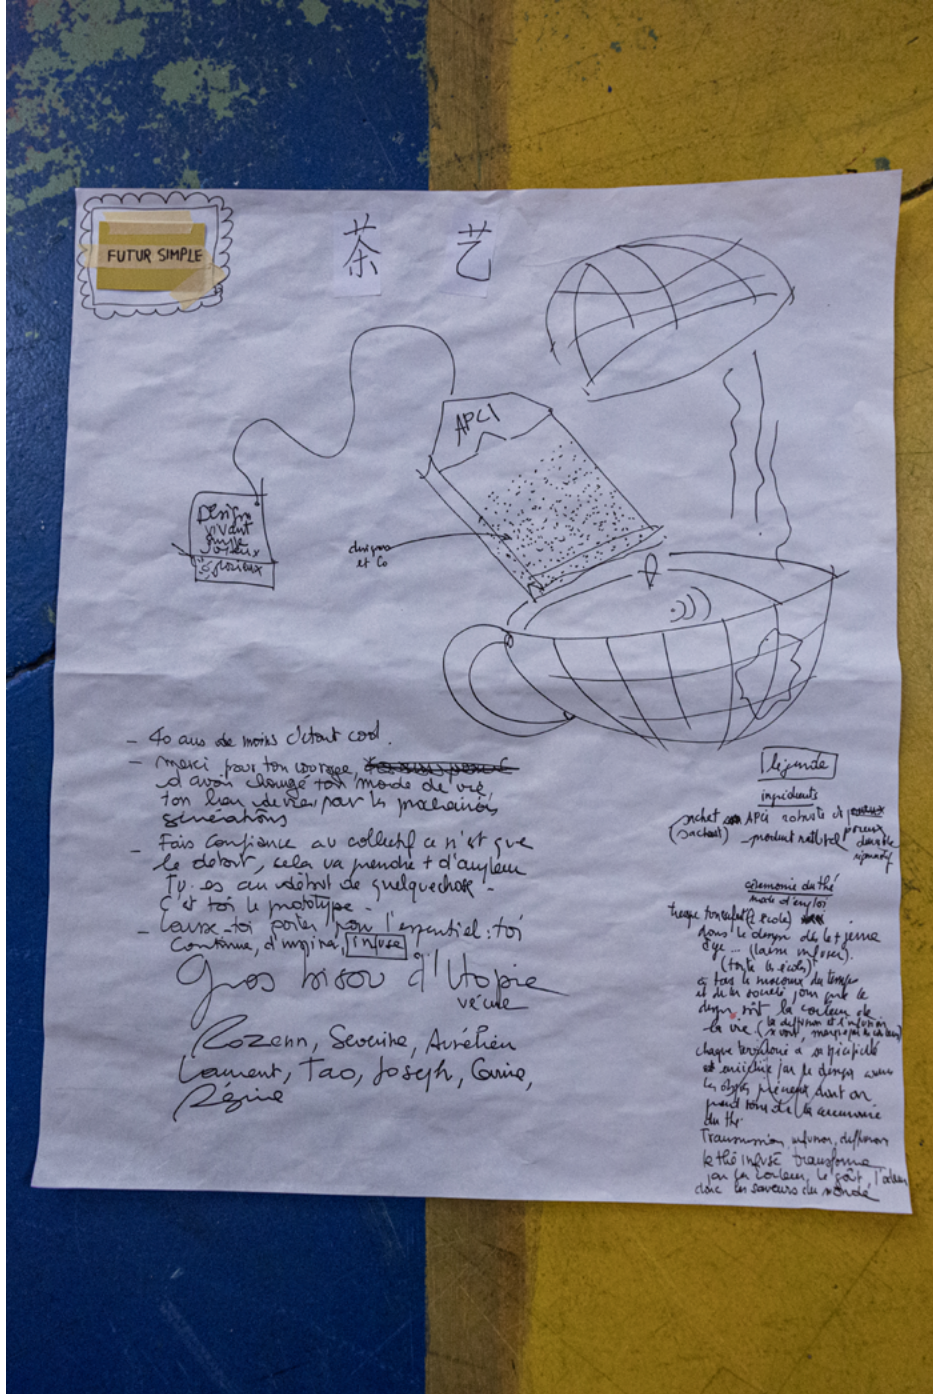 FUTUR SIMPLE
茶 艺
APCI
Design
vivant
joyeux
glorieux
designers
et Co
- 40 ans de moins c'était cool.
- merci pour ton courage,
d'avoir changé ton mode de vie,
ton lieu de vie, pour les prochaines
générations
- Fais confiance au collectif ce n'est que
le début, cela va prendre + d'ampleur
Tu es au début de quelquechose -
C'est toi le prototype -
- Laisse-toi porter pour l'essentiel : toi
Continue, d'inspirer, infuse
Gros bisou d'Utopie
vécue
Rozenn, Severine, Aurélien
Laurent, Tao, Joseph, Carine,
Régine
légende
ingrédients
sachet APCI robuste et
(sachant) - product naturel poreux
durable
cérémonie du thé
mode d'emploi
dans le design dès le + jeune
âge... (laisser infuser).
(toute les écoles)
et de la société pour que le
design soit la couleur de
la vie (la diffusion et l'infusion
chaque territoire a sa spécificité
est enrichie par le design avec
les objets présents dont on
prend soin de la cérémonie
du thé
Transmission, infusion, diffusion
le thé infusé transforme
par sa couleur, le goût, l'odeur
donc les saveurs du monde